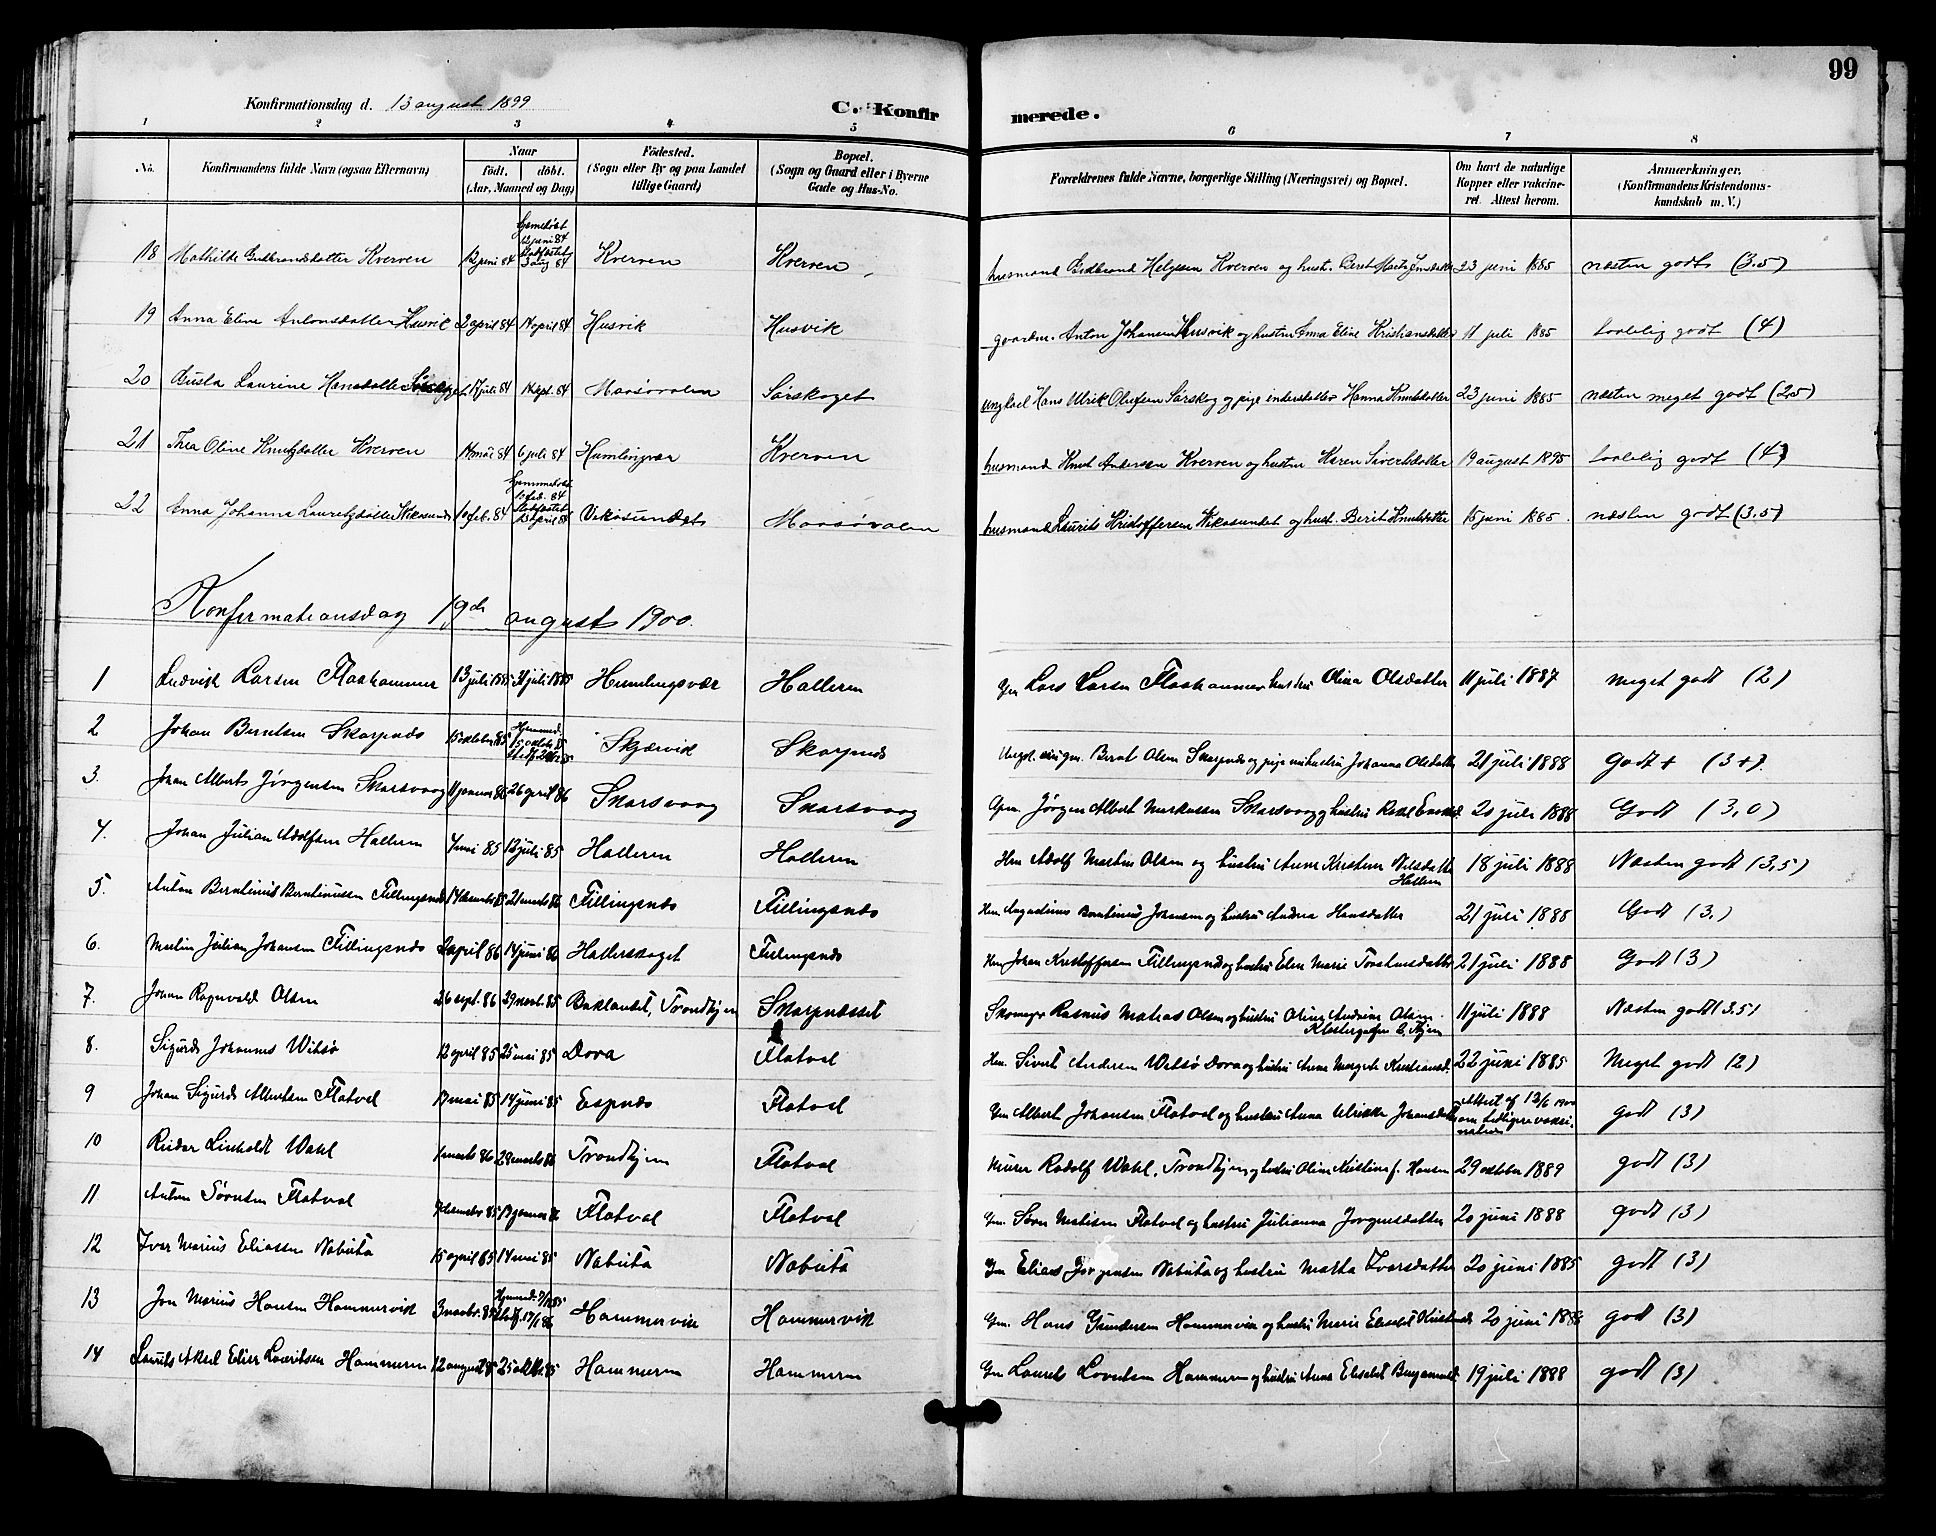 99
Konfirmationsdag d. 13 august 1899
C. Konfirmerede.
1 2 3 4 5 6 7 8
No. Konfirmandens fulde Navn (ogsaa Efternavn) Naar født. døbt. (Aar, Maaned og Dag) Fødested. (Sogn eller By og paa Landet tillige Gaard) Bopæl. (Sogn og Gaard eller i Byerne Gade og Hus-No. Forældrenes fulde Navne, borgerlige Stilling (Næringsvei) og Bopæl. Om havt de naturlige Kopper eller vakcineret. Attest herom. Anmærkninger. (Konfirmandens Kristendomskundskab m. V.)
18 Mathilde Gudbrandsdatter Kverven 12 juni 84 hjemedøbt 12 juni 84 stadfæstet 3 aug 84 Kverven Kverven husmand Gudbrand Helgesen Kverven og hust. Beret Marta 23 juni 1885 næsten godt (3.5)
19 Anna Eline Antonsdatter Husvik 2 april 84 14 april 84 Husvik Husvik gaardm. Anton Johansen Husvik og hustru Anna Eline Kristiansdatter 11 juli 1885 taalelig godt (4)
20 Gusta Laurine Hansdatter Sørskoget 17 juli 84 14 sept. 84 Maasøvalen Sørskoget ungkarl Hans Ulrik Olufsen Sørskog og pige inderstdatter Hanna Knutsdatter 23 juni 1885 næsten meget godt (2,5)
21 Thea Oline Knutsdatter Kverven 14 mai 84 6 juli 84 Humlingvær Kverven husmand Knut Andersen Kverven og hustru Karen Sivertsdatter 19 august 1895 taalelig godt (4)
22 Anna Johanna Lauritzdatter Vikasund 10 feb. 84 hjemmedøbt 10 feb. 84 stadfæstet 13 april 84 Vikasundet Maasøvalen husmand Laurits Kristoffersen Vikasundet og hust. Berit Knutsdatter 15 juni 1885. næsten godt (3.5)
Konfirmationsdag 19de august 1900.
1 Ludvik Larsen Flaahammer 13 juli 1885 31 juli 1885 Humlingsvær Halleren Gm Lars Larsen Flaahammer hustru Olina Olsdatter 11 juli 1887 meget godt (2)
2 Johan Berntsen Skarpnes 15 oktober 85 Hjemmed. 15 oktob. 85 Skjærvik Skarpnes Ungk. Bernt Olsen Skarpnes og pige Johanna Olsdatter 21 juli 1888 Godt + (3+).
3. Johan Alberts Jørgensen Skarsvaag 11 januar 86 26 april 86 Skarsvaag Skarsvaag Gm. Jørgen Albert Markussen Skarsvaag og hustru 20 juli 1888 Godt (3,0)
4. Johan Julian Adolfsen Halleren 4 mai 85 12 juli 85 Halleren Halleren Hm Adolf Martin Olsen og hustru Anne Kristine Nilsdatter Halleren 18 juli 1888 Næsten godt (3,5)
5. Anton Berntinus Berntinussen Fillingsnes 21 marts 86 Fillingsnes Fillingsnes Hm. Berntinus Johansen og hustru Andrea Hansdatter 21 juli 1888 Godt (3.)
6. Martin Julian Johansen Fillingsnes 2 april 86 14 juni 86 Hallerskoget Fillingsnes Hm Johan Kristoffersen Fillingsnes og hustru Elen Marie 21 juli 1888 Godt (3)
7. Johan Ragnvald Olsen 26 sept. 86 Baklandet, Trondhjem Skarpnæsset Skomager Rasmus Matias Olsen og hustru Oline Andrine Olsen. 11 juli 1888 Næsten godt (3.5)
8. Sigurd Johannes Witsø 12 april 85 25 mai 85 Dora Flatval Hm. Sivert Andersen Witsø Dora og hustru Anne Margrete Kristiansd. 22 juni 1885 Meget godt (2)
9 Johan Sigurd Albertsen Flatval 17 mai 85 14 juni 85 Espnes Flatval Gm Albert Johansen Flatval og hustru Anna Ulrikke Johansdatter Attest af 13/6 1900 om tidligere vaksination godt (3)
10 Reidar Linholdt Wahl 1 marts 86 28 marts 86 Trondhjem Flatval Murer Rudolf Wahl, Trondhjem og hustru Oline Kristine f. Hansen 29 oktober 1889 godt (3)
11. Anton Sørensen Flatval Flatval Flatval Gm. Søren Matisen Flatval og hustru Julianna Jørgensdatter 20 juni 1888 godt (3)
12 Ivar Marius Eliassen Nabeita 15 april 85 14 mai 85 Nabeita Nabeita Gm Elias Jørgensen Nabeita og hustru Martha Ivarsdatter 20 juni 1885 godt (3)
13 Jon Marius Hansen Hammervik 3 novbr. 85 Hammervik Hammervik Gm. Hans Gundersen Hammervik og hustru Marie Elisabet 20 juni 1888 godt (3)
14 Laurits Aksel Edier Lauritsen Hammeren 12 august 85 25 oktbr. 85 Hammeren Hammeren Gm Laurits Hammeren og hustru Anna Elisabet 19 juli 1888 godt (3)